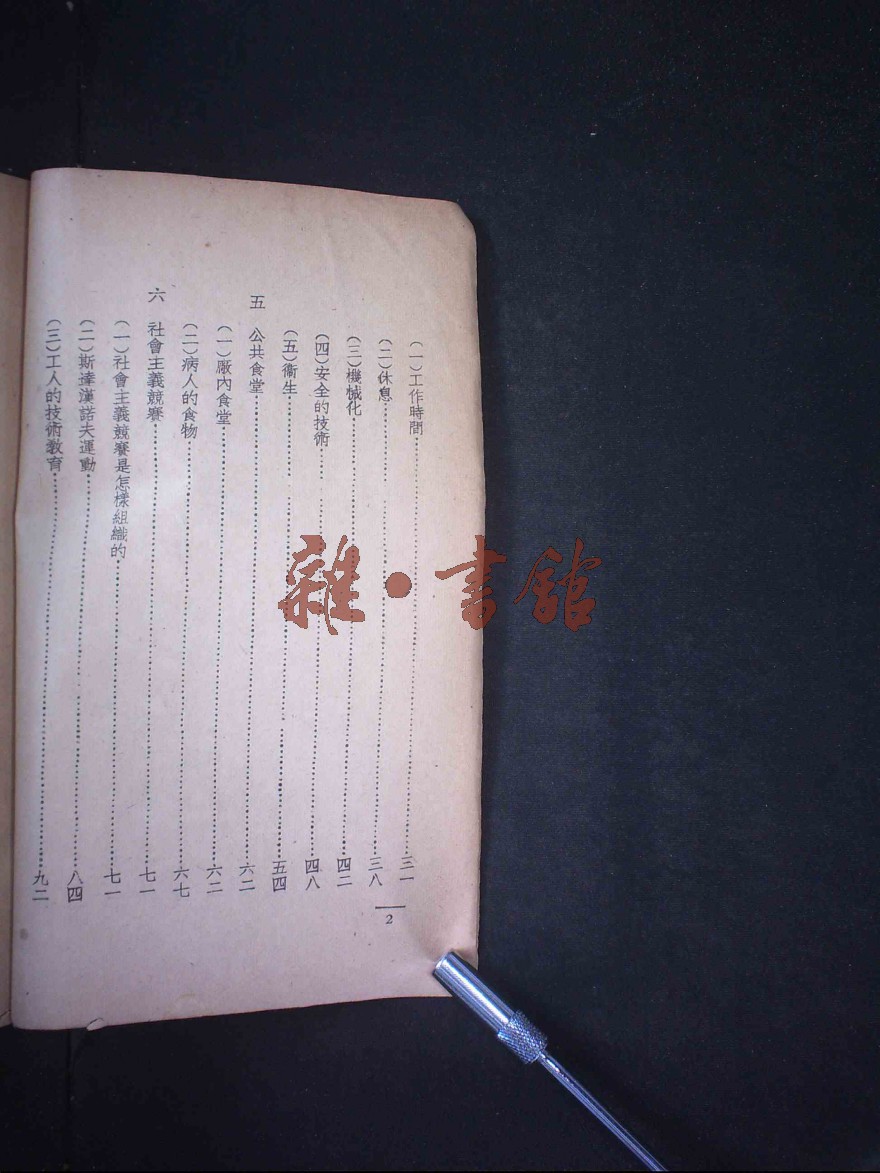 (一)工作時間……三一
(二)休息……三八
(三)機械化……四二
(四)安全的技術……四八
(五)衞生……五四
五 公共食堂……六二
(一)厰內食堂……六二
(二)病人的食物……六七
六 社會主義競賽……七一
(一)社會主義競賽是怎樣組織的……七一
(二)斯達漢諾夫運動……八四
(三)工人的技術教育……九二
2
雜·書館